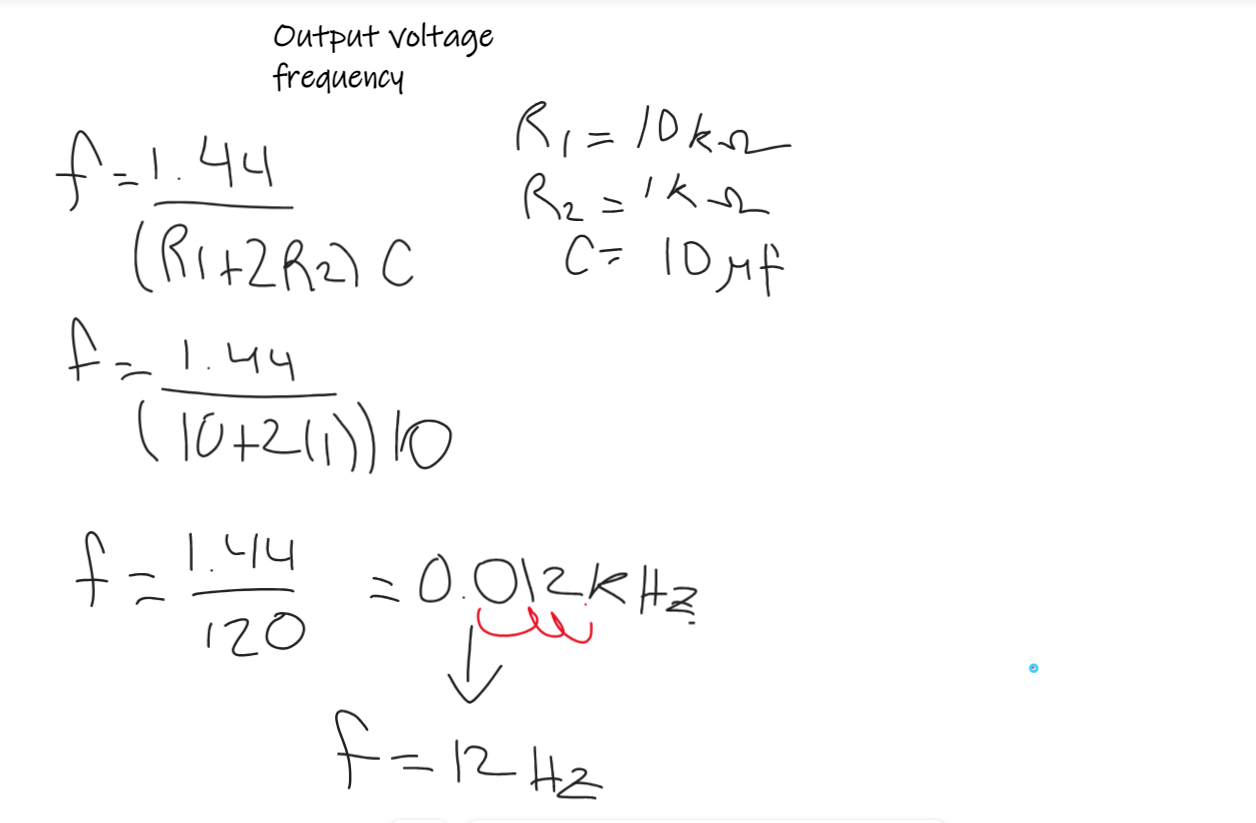 Output voltage
frequency
f = 1.44 / (R1+2R2) C
R1 = 10kΩ
R2 = 1kΩ
C = 10 μf
f = 1.44 / (10+2(1)) 10
f = 1.44 / 120 = 0.012kHz
f = 12 Hz